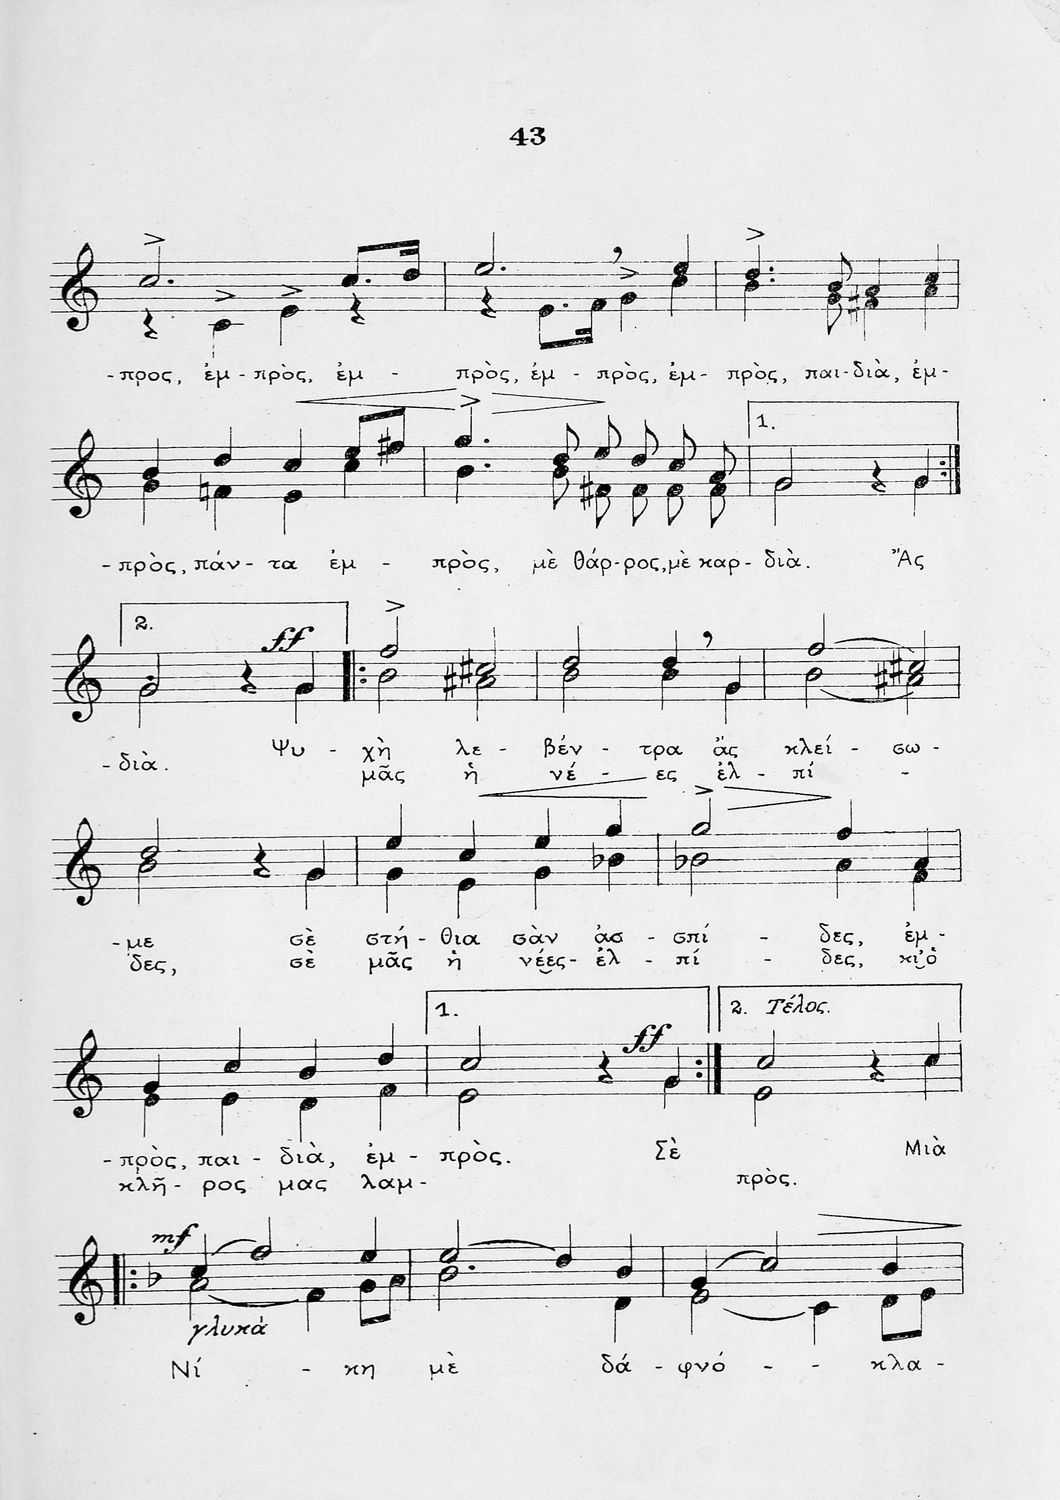 43
-προς, ἐμ - πρὸς, ἐμ - πρὸς, ἐμ - πρὸς, ἐμ- πρὸς, παι-διὰ, ἐμ-
1.
-πρὸς, πάν- τα ἐμ - πρὸς, μὲ θάρ-ρος,μὲ καρ- διὰ. Ἂς
2.
ff
Ψυ - χὴ λε - βέν - τρα ἂς κλεί - σω -
-διὰ. μᾶς ἡ νέ - ες ἐλ - πί -
-με σὲ στή- θια σὰν ἀσ - σπί - δες, ἐμ-
δες, σὲ μᾶς ἡ νέες- ἐλ - πί - δες, κι ὁ
1. ff 2. Τέλος.
-πρὸς, παι - διὰ, ἐμ - πρὸς. Σὲ Μιὰ
κλῆ- ρος μας λαμ- πρὸς.
mf
γλυκά
Νί - κη μὲ δά - φνό - - κλα -